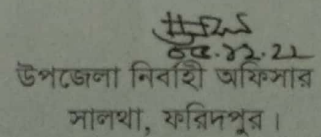 ০৫.১২.২২
উপজেলা নির্বাহী অফিসার
সালথা, ফরিদপুর।